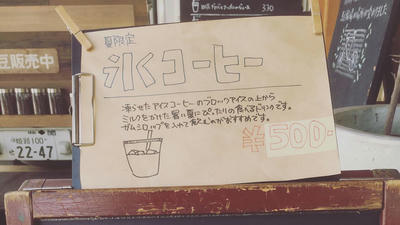 夏限定
氷コーヒー
凍らせたアイスコーヒーのブロックアイスの上から
ミルクをかけた暑い夏にぴったりの食べるドリンクです。
ガムシロップを入れて飲むのがおすすめです。
¥500-
豆販売中
330
姫路100
22-47